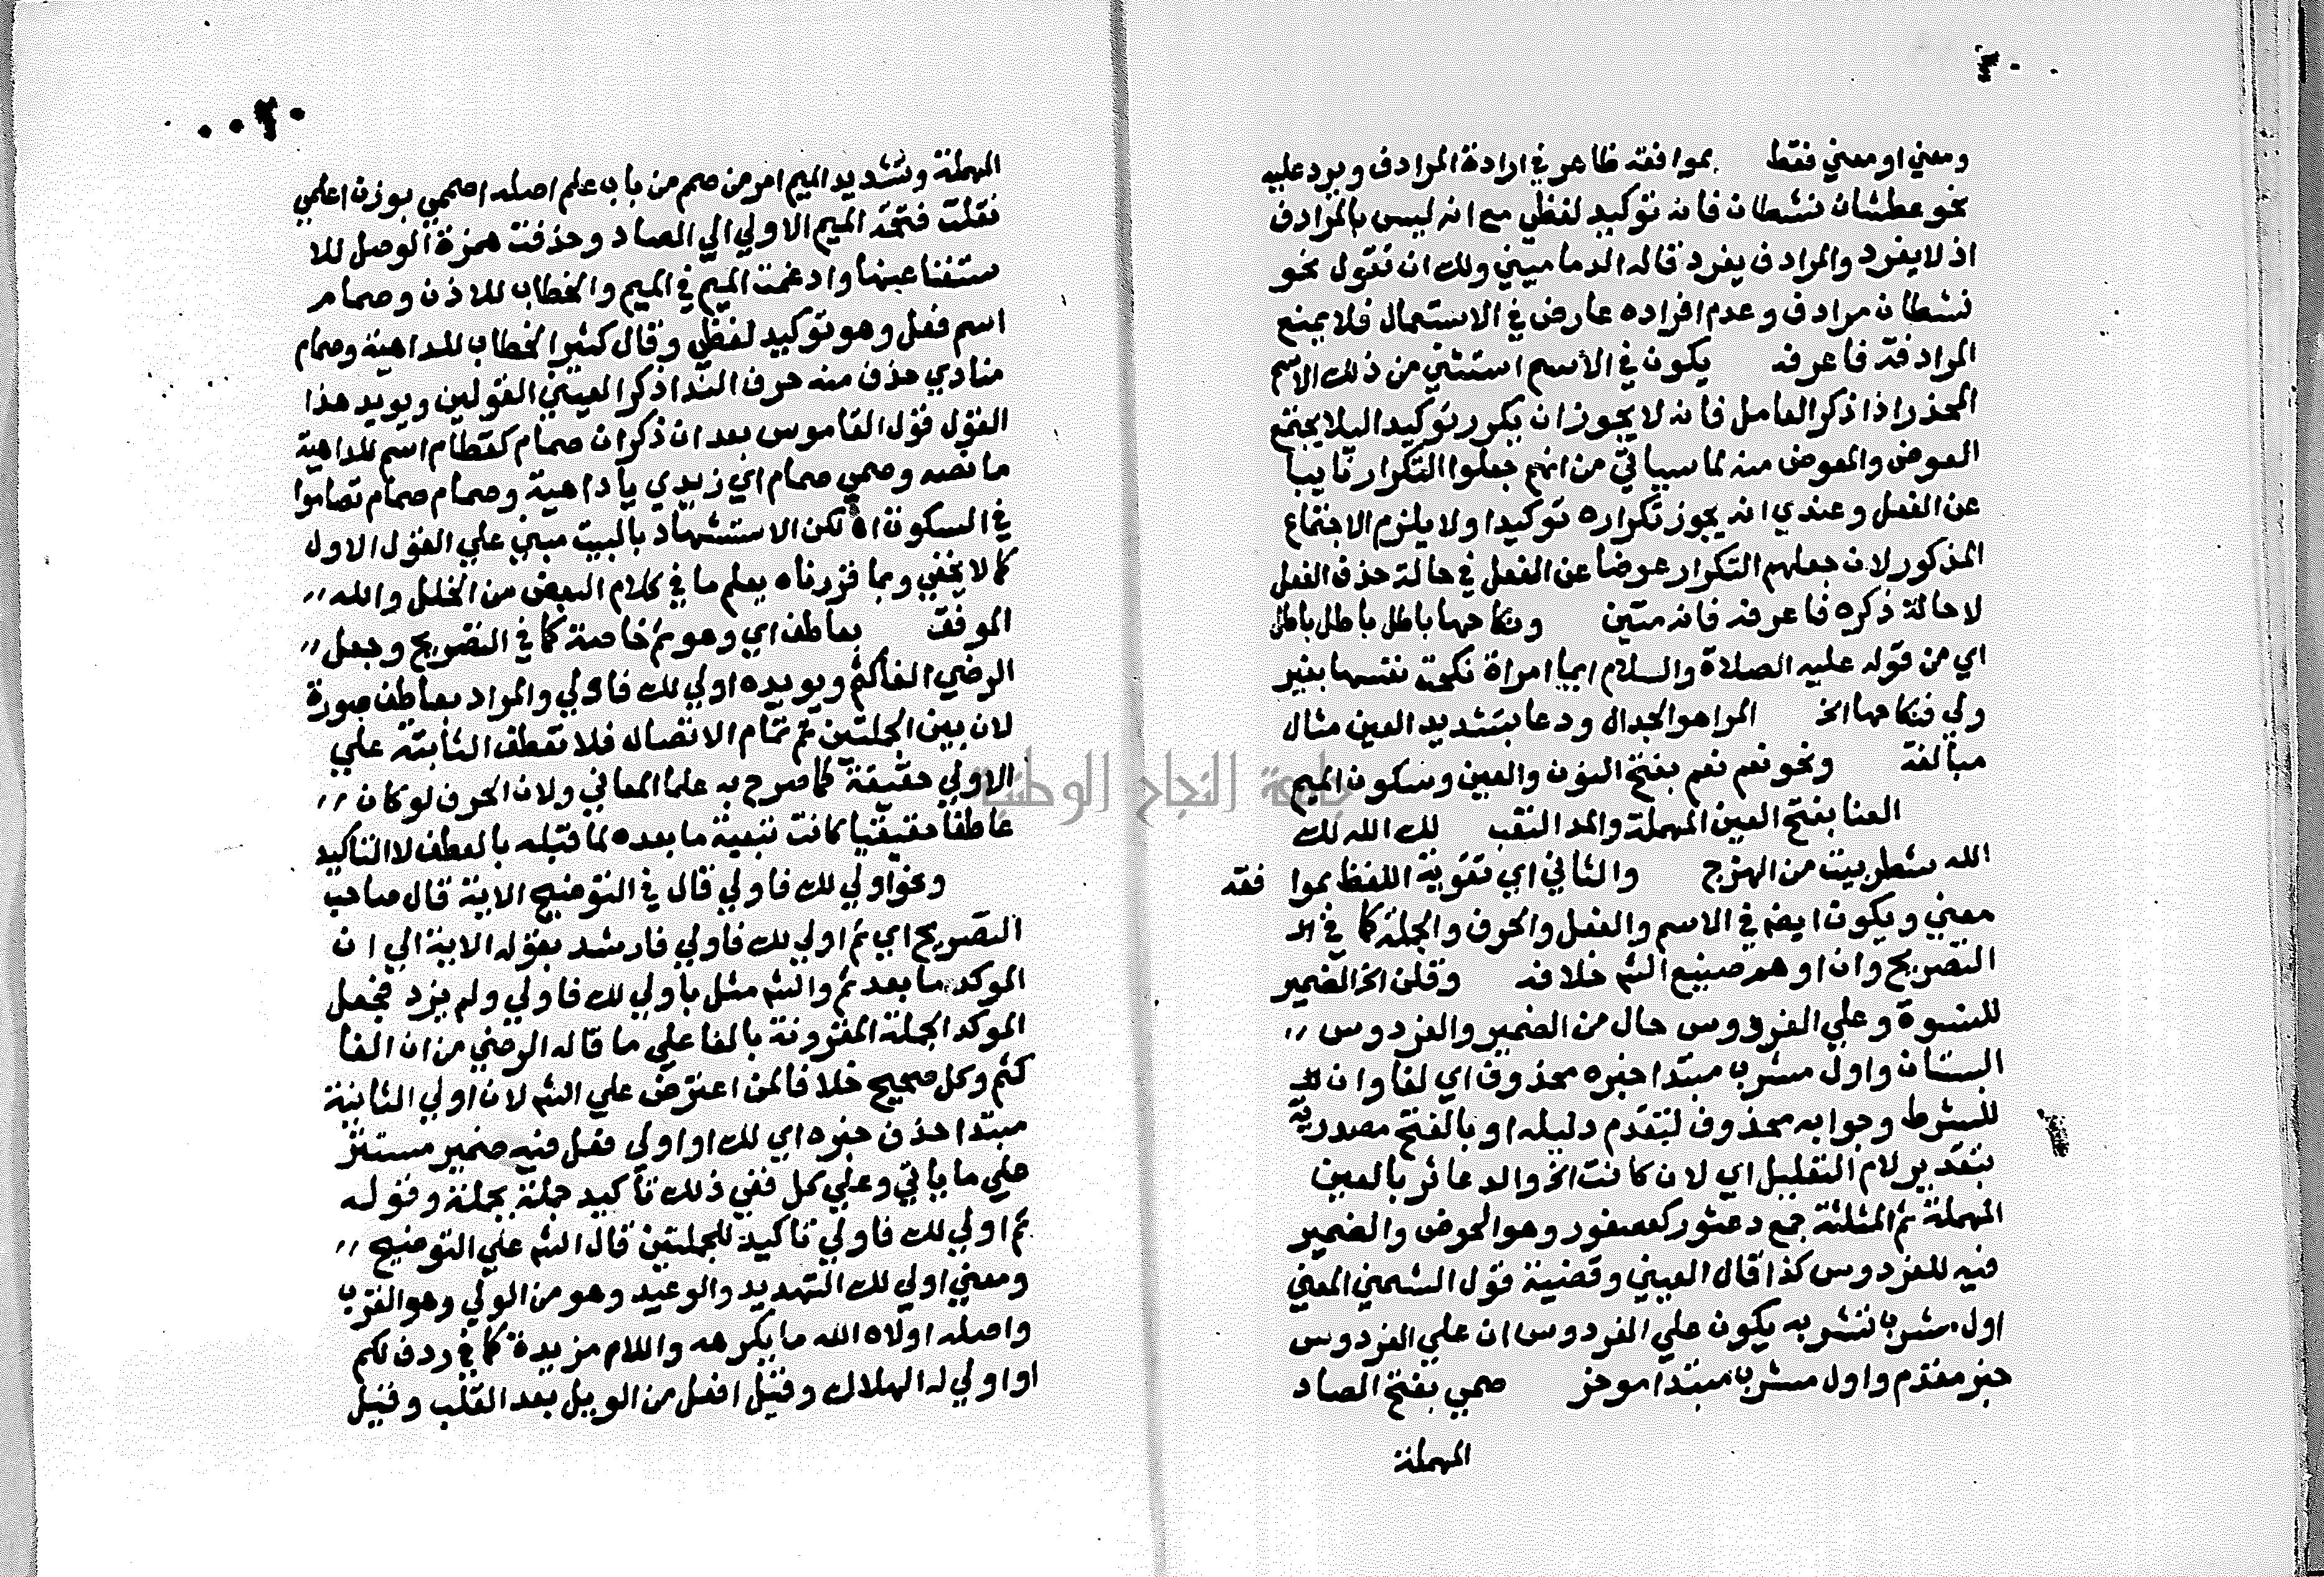 ٣٠
ومعني او معني فقط بموافقه ظاهر في ارادة المرادف ويرد عليه
نحو عطشان نشطان فانه توكيد لفظي مع انه ليس بالمرادف
اذ لا يفرد والمرادف يفرد قاله الدماميني ولك ان تقول نحو
نشطان مرادف وعدم افراده عارض في الاستعمال فلا يمنع
المرادفة فاعرفه يكون في الاسم استثني من ذلك الاسم
المحذر اذا ذكر العامل فانه لا يجوز ان يكرر توكيدا ليلا يجتمع
العوض والمعوض منه لما سياتي من انهم جعلوا التكرار نايبا
عن الفعل وعندي انه يجوز تكراره توكيدا ولا يلزم الاجتماع
المذكور لان جعلهم التكرار عوضا عن الفعل في حالة حذف الفعل
لا حالة ذكره فاعرفه فانه متين ونكاحها باطل باطل باطل
اي من قوله عليه الصلاة والسلام ايما امراة نكحت نفسها بغير
ولي فنكاحها الخ المرا هو الجدال ودعا بتشديد العين مثال
مبالغة ونحو نعم نعم بفتح النون والعين وسكون الميم
العنا بفتح العين المهملة والمد التعب لك الله لك
الله شطر بيت من الهزج والثاني اي تقوية اللفظ بموا فقه
معني ويكون ايضه في الاسم والفعل والحرف والجملة كما في
التصريح وان اوهم صنيع الشم خلافه وقلن الخ الضمير
للنسوة وعلي الفردوس حال من الضمير والفردوس
البستان واول مشرب مبتدا خبره محذوف اي لفا وان
للشرط وجوابه محذوف لتقدم دليله او بالفتح مصدرية
بتقدير لام التعليل اي لان كانت الخ والدعاثر بالعين
المهملة ثم المثلثة جمع دعثور كعصفور وهو الحوض والضمير
فيه للفردوس كذا قال العيني وقضية قول الشمني المعني
اول مشرب نشربه يكون علي الفردوس ان علي الفردوس
خبر مقدم واول مشرب مبتدا موخر صمي بفتح الصاد
المهملة
المهملة وتشديد الميم امر من صمم من باب علم اصله اصممي بوزن اعلمي
نقلت فتحة الميم الاولي الي الصاد وحذفت همزة الوصل للا
ستغنا عنها وادغمت الميم في الميم والخطاب للاذن وصمام
اسم فعل وهو توكيد لفظي وقال كثير الخطاب للداهية وصمام
منادي حذف منه حرف الندا ذكر العيني القولين ويويد هذا
القول قول القاموس بعد ان ذكر ان صمام كقطام اسم للداهية
ما نصه وصمي صمام اي زيدي يا داهية وصمام صمام تصاموا
في السكون اه لكن الاستشهاد بالبيت مبني علي القول الاول
كما لا يخفي وبما قررناه يعلم ما في كلام البعض من الخلل والله
الموفق بعاطف اي وهو ثم خاصة كما في التصريح وجعل
الرضي الفا كثم ويويده اولي لك فاولي والمراد بعاطف صورة
لان بين الجملتين ثم تمام الاتصال فلا تعطف الثانية علي
الاولي حقيقة كما صرح به علما المعاني ولان الحرف لو كان
عاطفا حقيقيا كانت تبعية ما بعده لما قبله بالعطف لا التاكيد
ونحو اولي لك فاولي قال في التوضيح الاية قال صاحب
التصريح اي ثم اولي لك فاولي فارشد بقوله الاية الي ان
الموكد ما بعد ثم والشم مثل باولي لك فاولي ولم يزد فجعل
الموكد الجملة المقرونة بالفا علي ما قاله الرضي من ان الفا
كثم وكل صحيح خلافا لمن اعترض علي الشم لان اولي الثانية
مبتدا حذف خبره اي لك او اولي فعل فيه ضمير مستتر
علي ما ياتي وعلي كل ففي ذلك تاكيد جملة بجملة وقوله
ثم اولي لك فاولي تاكيد للجملتين قال الشم علي التوضيح
ومعني اولي لك التهديد والوعيد وهو من الولي وهو القرب
واصله اولاه الله ما يكرهه واللام مزيدة كما في ردف لكم
او اولي له الهلاك وقيل افعل من الويل بعد القلب وقيل
جامعة النجاح الوطنية